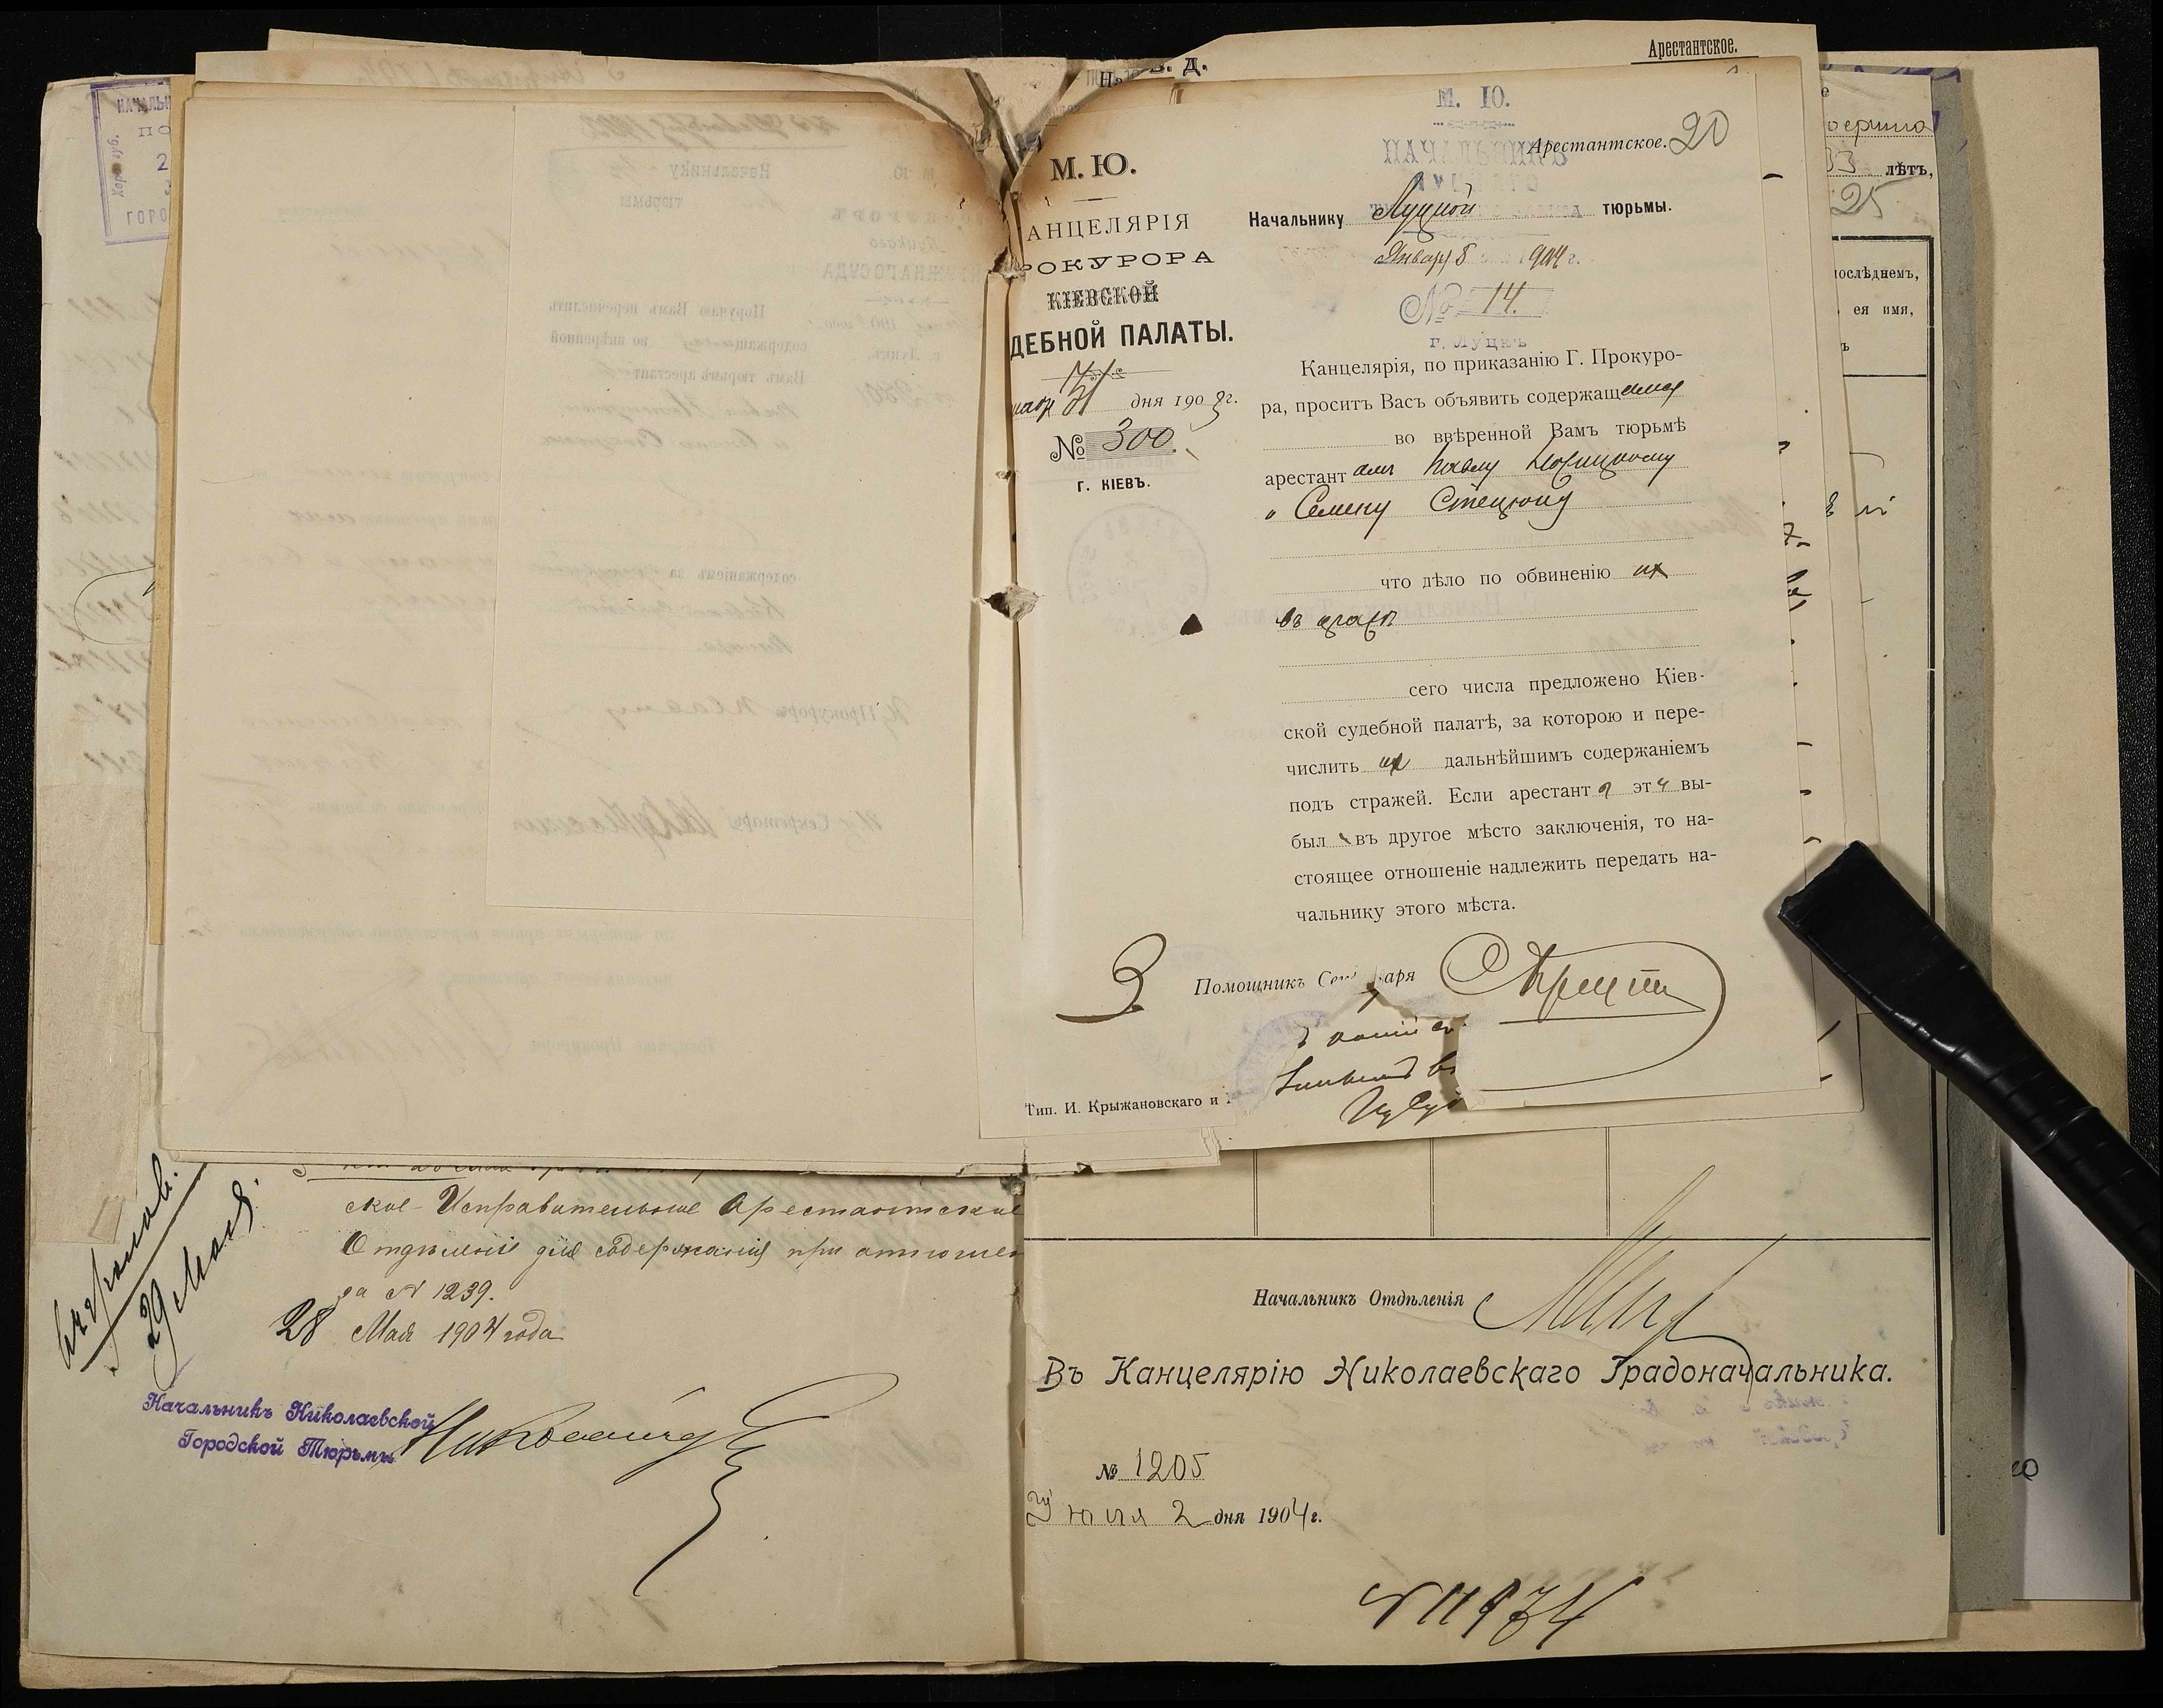 Арестантское.
В. Д.
На
М. Ю.
НАЧАЛЬНИКЪ
Арестантское. 20
М. Ю.
АНЦЕЛЯРІЯ
РОКУРОРА
КІЕВСКОЙ
ДЕБНОЙ ПАЛАТЫ.
31 дня 1903 г.
№ 300.
Г. КІЕВЪ.
Начальнику Луцкой тюрьмы.
Январ 8 1904 г.
№ 14.
г. Луцкъ
Канцелярія, по приказанію Г. Прокуро-
ра, проситъ Васъ объявить содержащимся
во ввѣренной Вамъ тюрьмѣ
арестантамъ Павлу Новицкому
и Семену Стецюку
что дѣло по обвиненію их
въ кражѣ
сего числа предложено Кіев-
ской судебной палатѣ, за которою и пере-
числить их дальнѣйшимъ содержаніемъ
подъ стражей. Если арестант эти вы-
был въ другое мѣсто заключенія, то на-
стоящее отношеніе надлежитъ передать на-
чальнику этого мѣста.
Помощникъ Се аря
Тип. И. Крыжановскаго и
3
лѣтъ,
33
25
послѣднемъ,
ея имя,
ское Исправительное Арестантское
Отдѣленіе для содержанія при отноше
за № 1239.
28 Мая 1904 года
29 Мая.
Начальникъ Николаевской
Городской Тюрьмы
Начальникъ Отдѣленія
Въ Канцелярію Николаевскаго Градоначальника.
№ 1205
Іюля 2 дня 1904 г.